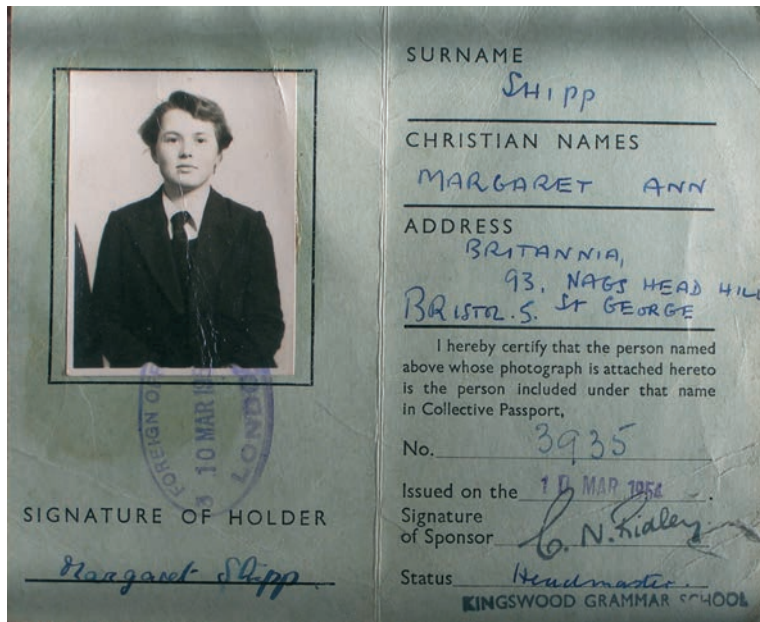 FOREIGN OF
10 MAR 19
LONDO
SIGNATURE OF HOLDER
Margaret Shipp.
SURNAME
SHIPP
CHRISTIAN NAMES
MARGARET ANN
ADDRESS
BRITANNIA,
93, NAGS HEAD HILL
BRISTOL. 5. ST GEORGE
I hereby certify that the person named
above whose photograph is attached hereto
is the person included under that name
in Collective Passport,
No. 3935
Issued on the 10 MAR 1954.
Signature
of Sponsor C. N. Ridley
Status Headmaster.
KINGSWOOD GRAMMAR SCHOOL